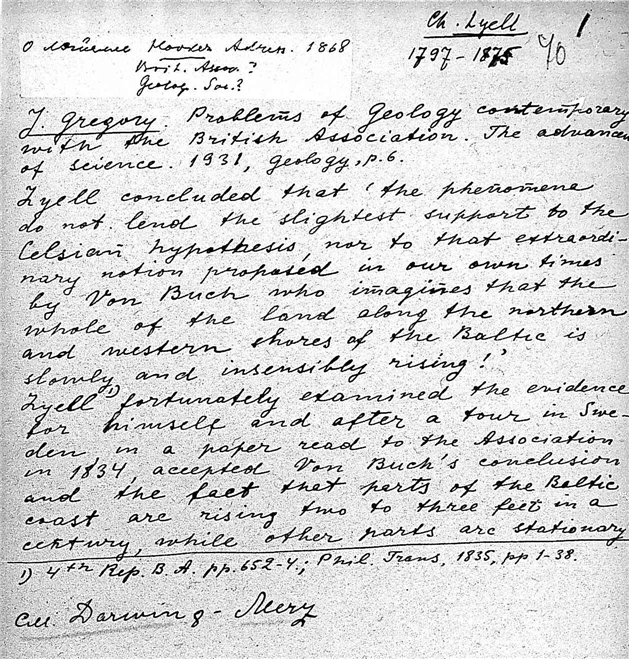 Ch. Lyell
1
1797-1875
70
О Hooker Adress. 1868
Brit. Assoc.?
Geolog. Soc.?
J Gregory Problems of Geology contemporary
with the British Association. The advancem
of science. 1931, Geology, p.6.
Lyell concluded that 'the phenomena
do not lend the slightest support to the
Celsian hypothesis, nor to that extraordi-
nary notion proposed in our own times
by Von Buch who imagines that the
whole of the land along the northern
and western shores of the Baltic is
slowly and insensibly rising!'
Lyell 1) fortunately examined the evidence
for himself and after a tour in Swe-
den, in a paper read to the Association
in 1834, accepted Von Buch's conclusion
and the fact that parts of the Baltic
coast are rising two to three feet in a
century, while other parts are stationary
1) 4th Rep. B. A. pp. 652-4.; Phil. Trans, 1835, pp 1-38.
см. Darwin g - Merz